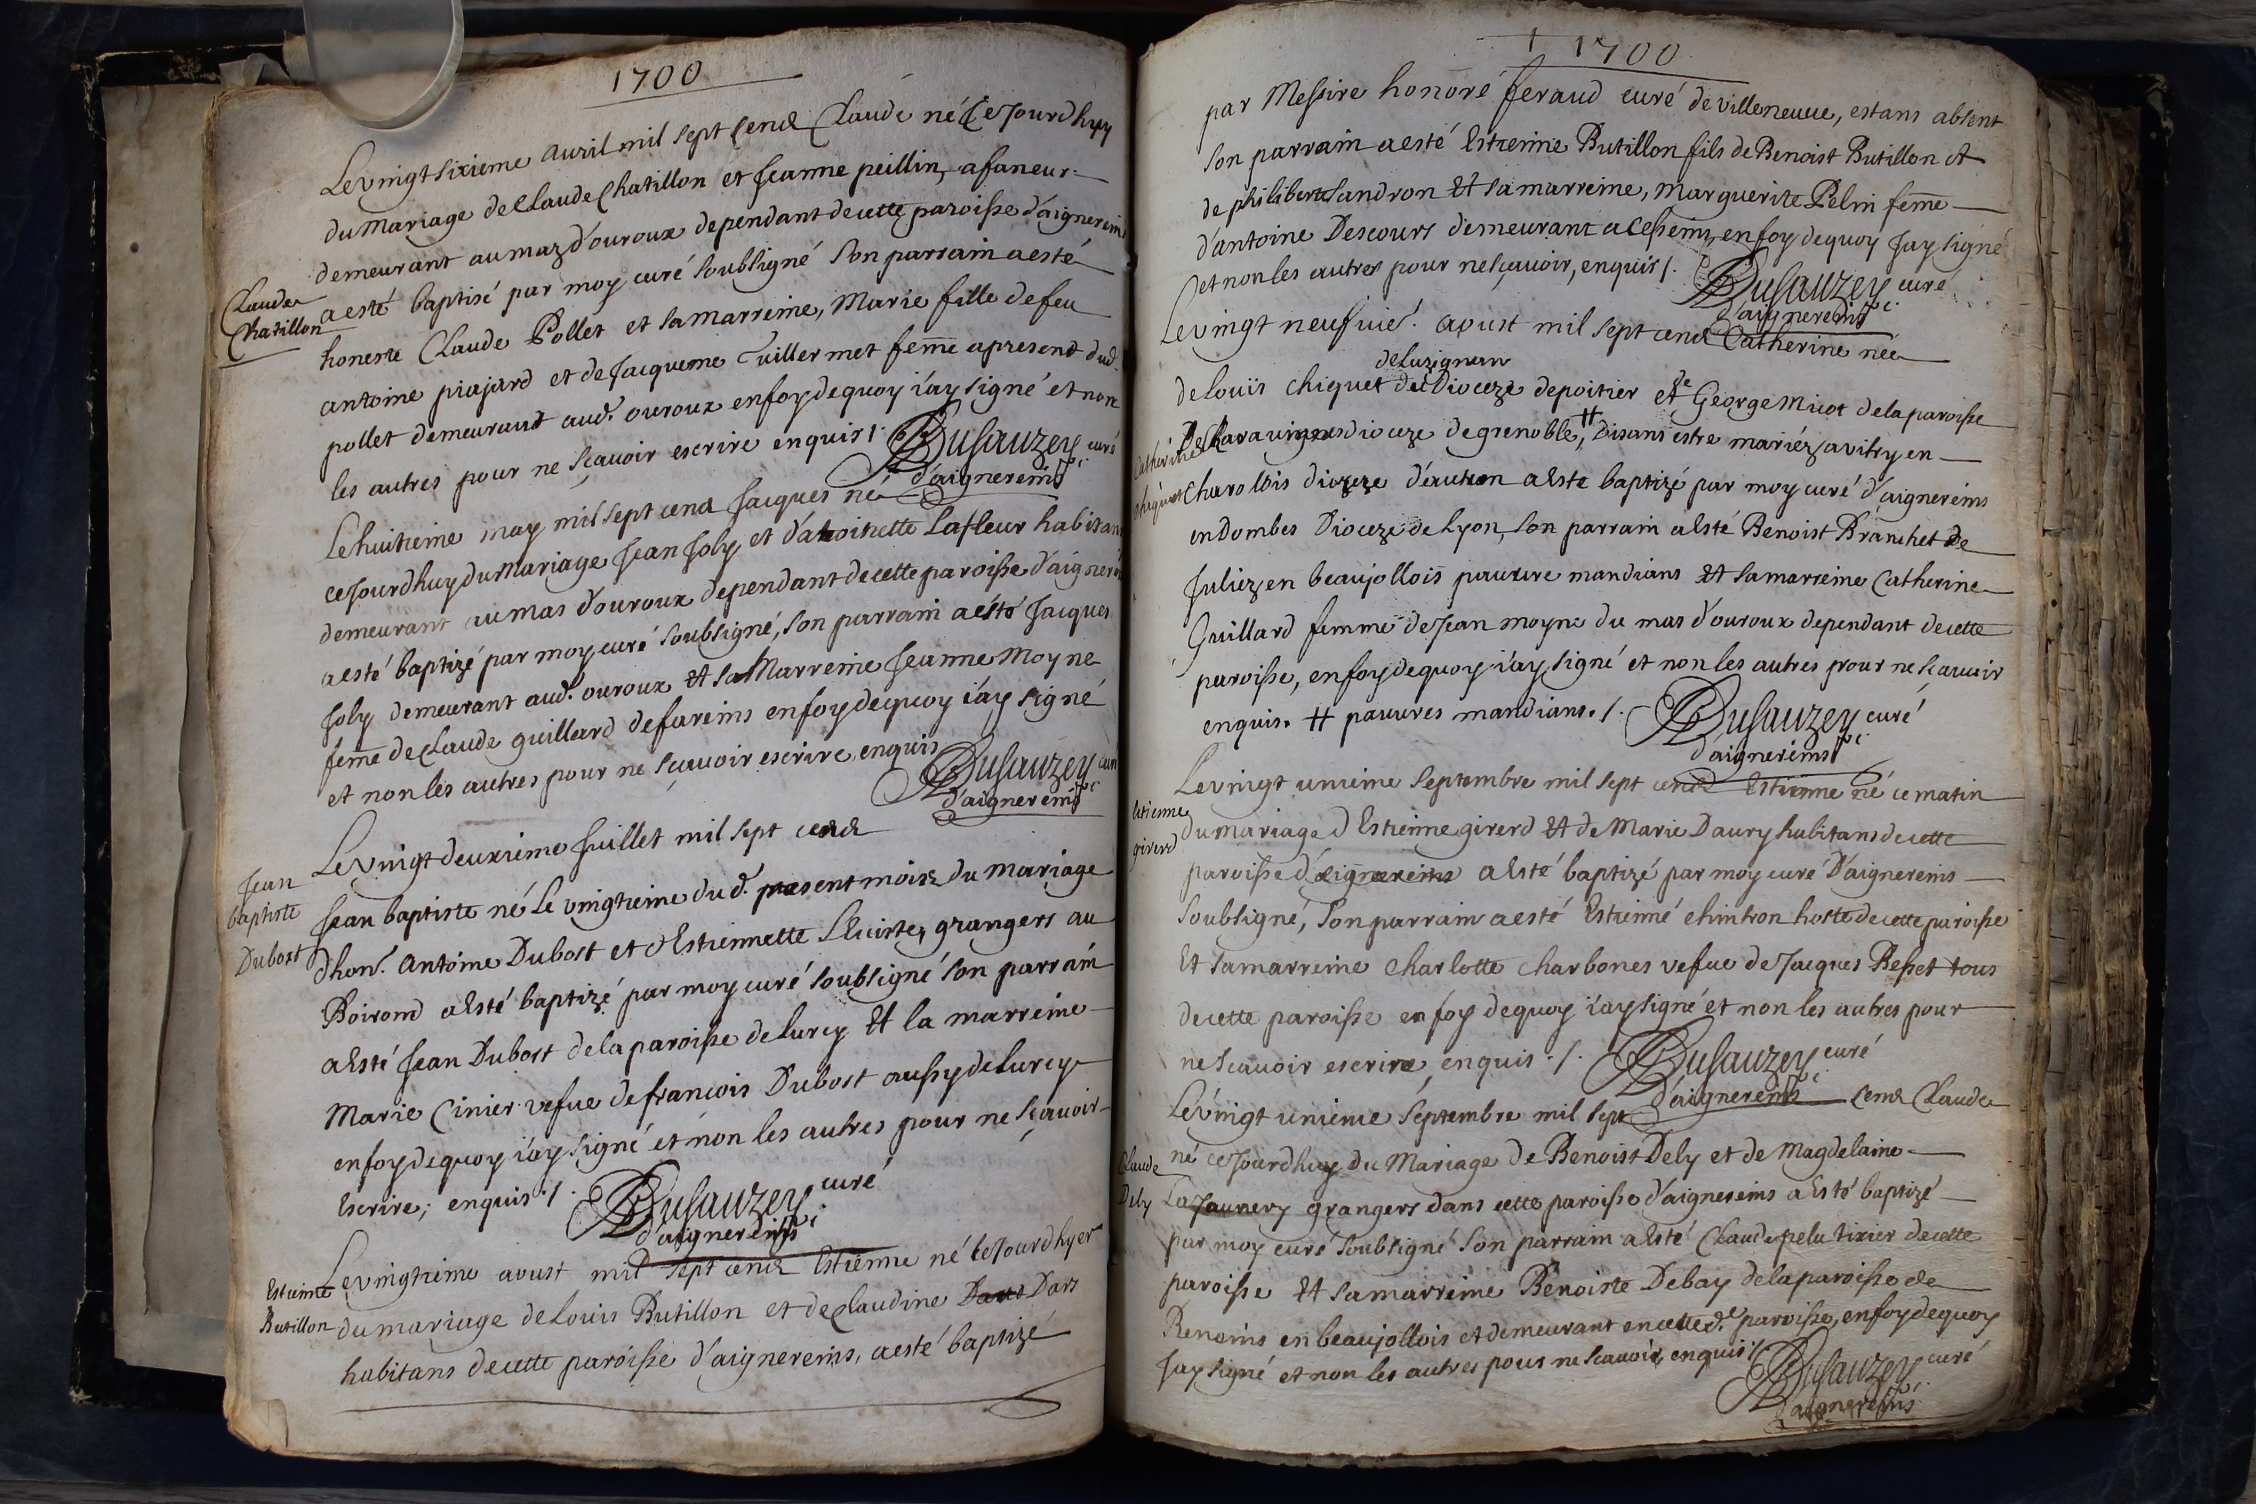 1700
Le vingt sixieme avril mil sept cend Claude né Ce Jourdhuy
du mariage de Claude Chatillon et Jeanne peillin, afaneur
demeurant au maz d'ouroux dependant de cette paroisse d'aignereins
Claude
a esté baptisé par moy curé soubsigné son parrain a esté
Chatillon
honeste Claude Pollet et sa marreine, Marie fille de feu
antoine piajard et de Jacqueme Tuillermet feme apresend dud.
pollet demeurant aud. ouroux en foy de quoy i'ay signé et non
les autres pour ne sçavoir escrire enquis /. Dusauzey curé
d'aignereins
Le huitieme may mil sept cend Jacques né
ce Jourdhuy du mariage Jean Joly et d'atoinette Lafleur habitans
demeurant au mas d'ouroux dependant de cette paroisse d'aignereins
a esté baptizé par moy curé soubsigné, son parrain a esté Jacques
Joly demeurant aud. ouroux Et sa Marreine Jeanne Moyne
feme de Claude guillard de fareins en foy de quoy i'ay signé
et non les autres pour ne sçavoir escrire enquis Dusauzey curé
d'aignereins
Le vingt deuxieme Juillet mil sept cend
Jean
baptiste
Dubost
Jean baptiste né Le vingtieme dud. present mois du mariage
d'hon. Antoine Dubost et d'Estiennette grangers au
Boirond a Esté baptizé par moy curé soubsigné son parrain
a Esté Jean Dubost de la paroisse de Lurcy Et la marreine
Marie Cinier vefue de francois Dubost aussy de Lurcy
en foy de quoy i'ay signé et non les autres pour ne sçavoir
Escrire, enquis /. Dusauzey curé
d'aignereins
Estienne
Butillon
Le vingtieme aoust mil sept cend Estienne né Ce Jourdhyer
du mariage de Louis Butillon et de Claudine Dars
habitans de cette paroisse d'aignereins, a esté baptizé
1700
par Messire honoré feraud curé de villeneuue, estans absent
son parrain a esté Estienne Butillon fils de Benoist Butillon et
de philiberte sandron Et sa marreine, marguerite Pelin feme
d'antoine Descours demeurant a Cesseins, en foy de quoy Jay signé
et non les autres pour ne sçavoir, enquis /. Dusauzey curé
d'aignereins
Le vingt neufuie. aoust mil sept cend Catherine née
de Luzignan
de Louis chiquet du Dioceze de poitier et de George Micot de la paroisse
Catherine
chiquet
de Charauignes dioceze de grenoble, # Disans estre mariéz a vitry en
charolois dioceze d'autun a Esté baptizé par moy curé d'aignereins
en Dombes Dioceze de Lyon, son parrain a Esté Benoist Branchet de
Juliez en beaujollois pauure mandians Et sa marreine Catherine
Guillard femme de Jean moyne du mas d'ouroux dependant de cette
paroisse, en foy de quoy i'ay signé et non les autres pour ne sçauoir
enquis. # pauures mandians. /. Dusauzey curé
d'aignereins
Le vingt unieme Septembre mil sept cend Estienne né ce matin
Estienne
girerd
du mariage d'Estienne girerd Et de Marie Daury habitans de cette
paroisse d'aignereins a Esté baptizé par moy curé D'aignereins
soubsigné, son parrain a esté Estienne chintron hoste de cette paroisse
Et sa marreine charlotte charbones vefue de Jacques Besset tous
de cette paroisse en foy de quoy i'ay signé et non les autres pour
ne sçauoir escrire, enquis. /. Dusauzey curé
d'aignereins
Le vingt unieme Septembre mil sept cend Claude
Claude
Dely
né ce Jourdhuy Du Mariage de Benoist Dely et de Magdelaine
La Jaunery grangers dans cette paroisse d'aignereins a Esté baptizé
par moy curé soubsigné son parrain a Esté Claude pelu tixier de cette
paroisse Et sa marreine Benoiste Debay de la paroisse de
Reneins en beaujollois et demeurant en cette d.e paroisse, en foy de quoy
Jay signé et non les autres pour ne sçauoir, enquis /. Dusauzey curé
d'aignereins